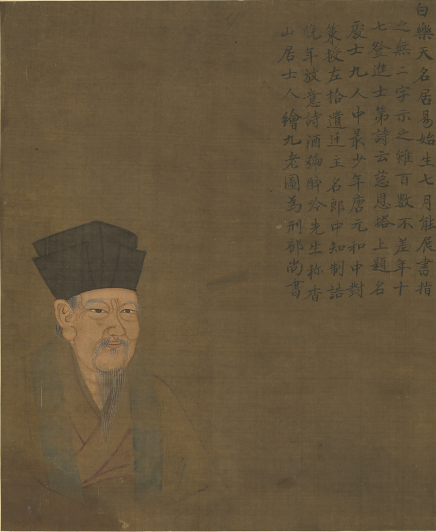 白樂天名居易始生七月能展書指
之無二字示之雖百數不差年十
七登進士第詩云慈恩塔上題名
處十九人中最少年唐元和中對
策校左拾遺迁主名郎中知制誥
晚年放意詩酒號醉吟先生称香
山居士人繪九老圖為刑部尚書